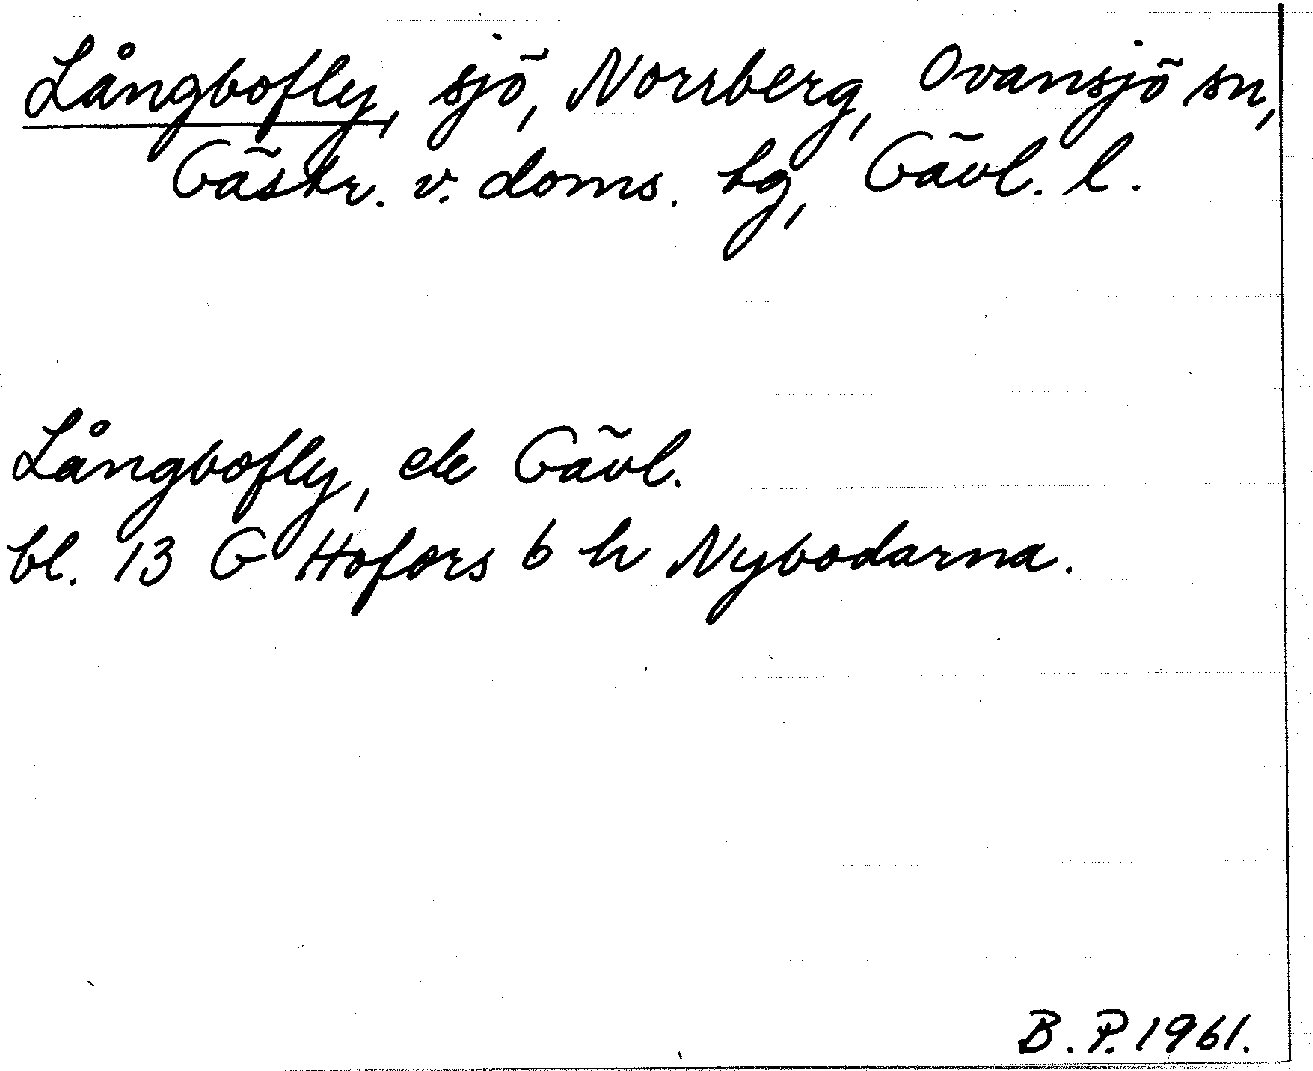 Långbofly, sjö, Norrberg, Ovansjö sn,
Gästr. v. doms. tg, Gävl. l.
Långbofly, ek Gävl.
bl. 13 G Hofors 6 h Nybodarna.
B. P. 1961.